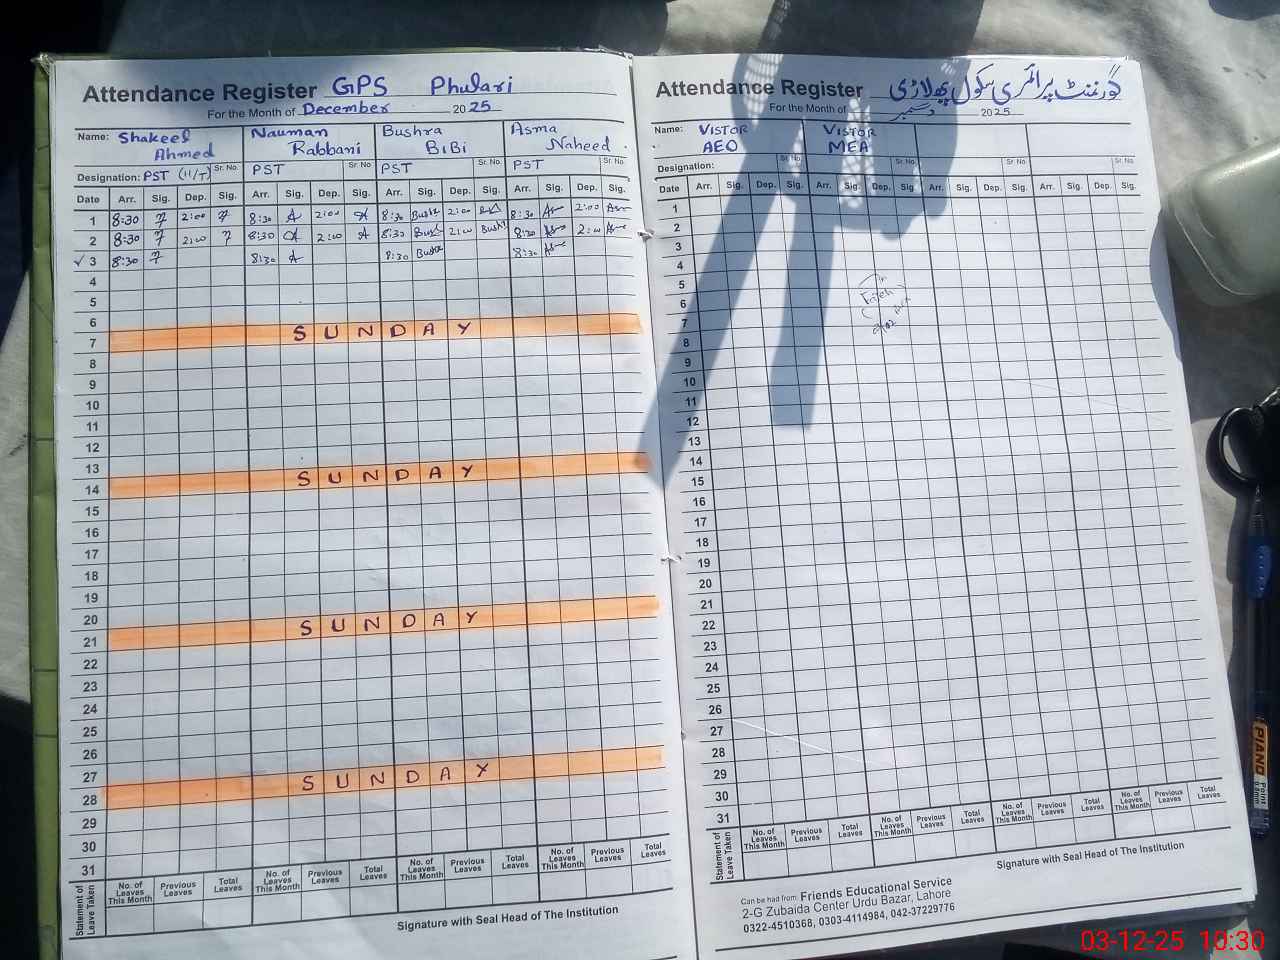 Attendance Register GPS Phulari
For the Month of December 2025
Name: Shakeel Ahmed Nauman Rabbani Bushra BiBi Asma Naheed
Designation: PST (H/T) Sr. No. PST Sr. No. PST Sr. No. PST Sr. No.
Date Arr. Sig. Dep. Sig. Arr. Sig. Dep. Sig. Arr. Sig. Dep. Sig. Arr. Sig. Dep. Sig.
1 8:30 2:00 8:30 2:00 8:30 Bushra 2:00 8:30 2:00
2 8:30 2:00 8:30 2:00 8:30 Bushra 2:00 Bushra 8:30 2:00
✓ 3 8:30 8:30 8:30 Bushra 8:30
4
5
6
7 SUNDAY
8
9
10
11
12
13
14 SUNDAY
15
16
17
18
19
20
21 SUNDAY
22
23
24
25
26
27
28 SUNDAY
29
30
31
Statement of Leave Taken No. of Leaves This Month Previous Leaves Total Leaves No. of Leaves This Month Previous Leaves Total Leaves No. of Leaves This Month Previous Leaves Total Leaves No. of Leaves This Month Previous Leaves Total Leaves
Signature with Seal Head of The Institution
Attendance Register گورنمنٹ پرائمری سکول پھلاڑی
For the Month of دسمبر 2025
Name: VISTOR AEO VISTOR MEA
Designation: Sr. No. Sr. No. Sr. No. Sr. No.
Date Arr. Sig. Dep. Sig. Arr. Sig. Dep. Sig. Arr. Sig. Dep. Sig. Arr. Sig. Dep. Sig.
1
2
3
4
5
6
7
8
9
10
11
12
13
14
15
16
17
18
19
20
21
22
23
24
25
26
27
28
29
30
31
Statement of Leave Taken No. of Leaves This Month Previous Leaves Total Leaves No. of Leaves This Month Previous Leaves Total Leaves No. of Leaves This Month Previous Leaves Total Leaves No. of Leaves This Month Previous Leaves Total Leaves
Signature with Seal Head of The Institution
Can be had from: Friends Educational Service
2-G Zubaida Center Urdu Bazar, Lahore
0322-4510368, 0303-4114984, 042-37229776
PIANO
Point
03-12-25 10:30